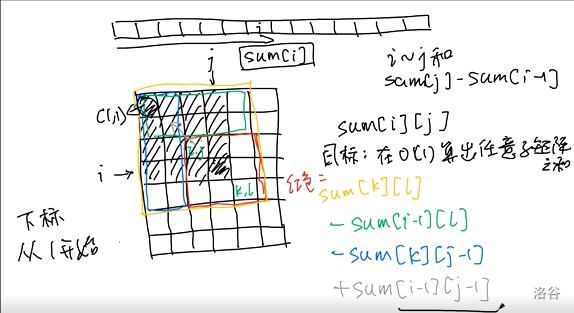 i
sum[i]
i~j和
sum[j]-sum[i-1]
j
C1,1)
sum[i][j]
目标：在O(1)算出任意子矩阵
之和
i→
i,j
k,l
红色=
sum[k][l]
-sum[i-1][l]
-sum[k][j-1]
+sum[i-1][j-1]
下标
从1开始
洛谷